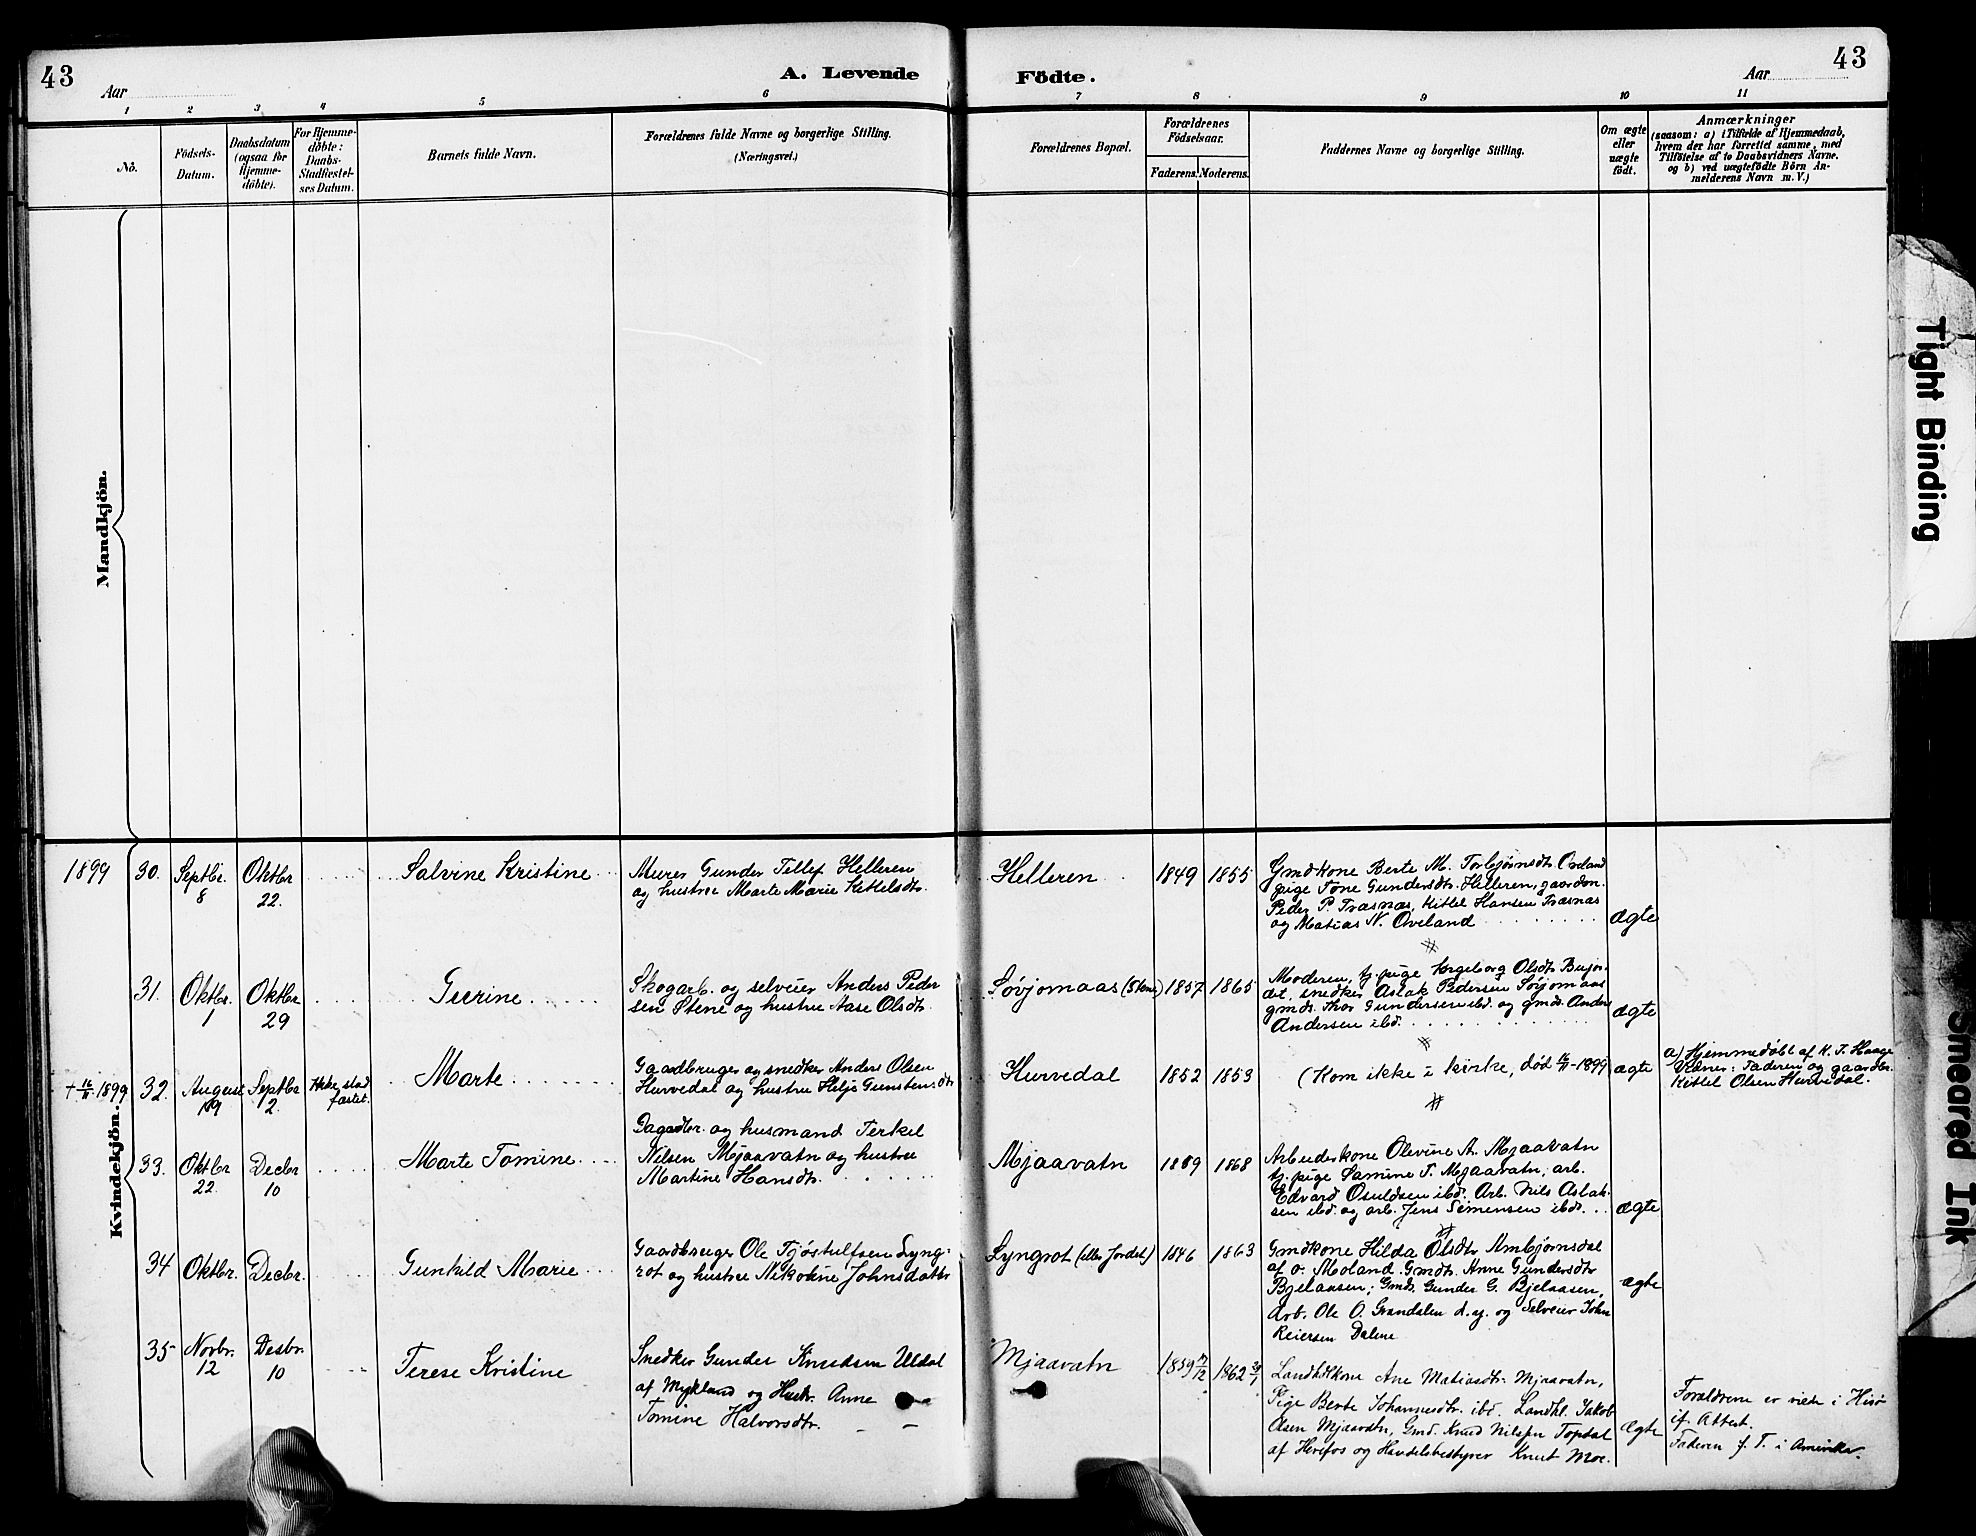 43
A. Levende Födte.
43
Aar
Aar
1 2 3 4 5 6 7 8 9 10 11
No.
Födsels-
Datum.
Daabsdatum
(ogsaa for
Hjemme-
döbte).
For Hjemme-
döbte:
Daabs-
Stadfæstel-
ses Datum.
Barnets fulde Navn.
Forældrenes fulde Navne og borgerlige Stilling.
(Næringsvei.)
Forældrenes Bopæl.
Forældrenes
Födselsaar.
Faderens. Moderens.
Faddernes Navne og borgerlige Stilling.
Om ægte
eller
uægte
født.
Anmærkninger
(saasom: a) i Tilfælde af Hjemmedaab,
hvem der har forrettet samme, med
Tilföielse af to Daabsvidners Navne.
og b) ved uægtefödte Börn An-
melderens Navn m. V.)
Mandkjön.
Kvindekjön.
1899
30.
Septbr.
8
Oktbr
22.
Salvine Kristine
Murer Gunder Tellef Helleren
og hustru Marte Marie Kittelsdtr.
Helleren
1849
1855
Gmdkone Berte M. Torbjørnsdtr Oveland
pige Tone Gundersdtr. Helleren, gaardm.
Peder P. Træsnæs, Kittel Hansen Træsnæs
og Matias N. Oveland
ægte
31.
Oktbr.
1
Oktbr
29
Gurine
Skogarb. og selveier Anders Peder
sen Stene og hustru Aase Olsdtr.
Søvjomaas (Stene)
1857
1865
Moderen, tj. pige Ingeborg Olsdtr
det, snedker Aslak Pedersen Søvjomaas
gmds. Thor Gundersen ibd. og gmds. Anders
Andersen ibd.
ægte
+ 16/11 1899
32.
August
19
Septbr
2
Ikke stad
fæstet.
Marte
Gaardbruger og snedker Anders Olsen
Hurvedal og hustru Helje Gunstensdtr
Hurvedal
1852
1853
(Kom ikke i kirke, død 16/11-1899
ægte
a) Hjemmedøbt af K. T. Haage
Vidner: Faderen og gaardbr.
Kittel Olsen Hurvedal.
33.
Oktbr
22.
Decbr
10
Marte Tomine
Dagarbr. og husmand Terkel
Nilsen Mjaavatn og hustru
Martine Hansdtr.
Mjaavatn
1868
Arbeiderkone Olevine A. Mjaavatn
tj. pige Samine T. Mjaavatn, arb.
Edvard Osuldsen ibd. Arb. Nils Aslak-
sen ibd. og arb. Jens Simensen ibdr.
ægte
34
Oktbr.
Decbr.
Gunhild Marie
Gaardbruger Ole Tjøstulfsen Lyng-
rot og hustru Nikoline Johnsdatter
Lyngrot (eller Jordet)
1846
1863
Gmdkone Hilda Olsdtr Ambjørnsdal
af ø. Moland. Gmdtr. Anne Gundersdtr
Bjelaasen; Gmds. Gunder G. Bjelaasen,
Arb. Ole O. Grandalen d. y. og Selveier John
Reiersen Dalene
ægte
35
Novbr.
12
Desbr.
10
Terese Kristine
Snedker Gunder Knudsen Uldal
af Mykland og Hustr. Anne
Tomine Halvorsdtr.
Mjaavatn
1859
1862
Landhlkone Ane Matiasdtr. Mjaavatn,
Pige Berte Johannesdtr. ibd. Landhl. Jakob
Olsen Mjaavatn, Gmd. Knud Nilsen Topdal
af Herefos og Handelsbestyrer Knut Moe.
ægte
Forældrene er viede i Hisø
if. Attest.
Faderen f. T. i Amerika.
Tight Binding
Smeared Ink